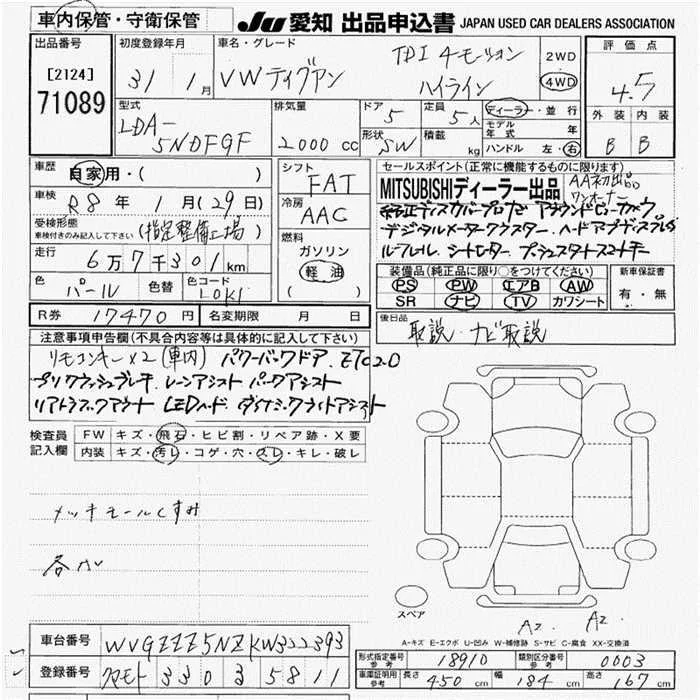 車内保管・守衛保管
JU 愛知 出品申込書 JAPAN USED CAR DEALERS ASSOCIATION
出品番号
[2124]
71089
初度登録年月
31年 1月
車名・グレード
VW ティグアン
TDI 4モーション
ハイライン
2WD
4WD
評価点
4.5
外装 内装
B B
型式
LDA-
5NDFGF
排気量
2000 cc
ドア
5
形状
SW
定員
5人
積載
kg
ディーラー・並行
モデル年式 年
ハンドル 左・右
車歴
自家用・( )
車検
R8年 1月(29日)
受検形態
車検付きのみ記入して下さい
(指定整備工場)
走行
6万7千301km
色
パール
色替
色コード
LOK1
シフト
FAT
冷房
AAC
燃料
ガソリン
軽油
( )
R券 17470円 名変期限 月 日
セールスポイント(正常に機能するものに限ります)
MITSUBISHIディーラー出品
AA初出品
ワンオーナー
純正ディスカバープロナビ アラウンドビューカメラ
デジタルメータークラスター ヘッドアップディスプレイ
ルーフレール シートヒーター プッシュスタートスマートキー
装備品(純正品に限り○をつけてください)
PS PW エアB AW
SR ナビ TV カワシート
新車保証書
有・無
後日品
取説・ナビ取説
注意事項申告欄(不具合内容等は具体的に記入して下さい)
リモコンキー×2(車内) パワーバックドア、ETC2.0
プリクラッシュブレーキ レーンアシスト パークアシスト
リアトラフィックアラート LEDヘッド ダイナミックライトアシスト
検査員
記入欄
FW キズ・飛石・ヒビ割・リペア跡・X要
内装 キズ・汚レ・コゲ・穴・スレ・キレ・破レ
メッキモールくすみ
各小
スペア
A2 A2
A-キズ E-エクボ U-凹み W-補修跡 S-サビ C-腐食 XX-交換済
車台番号 WVGZZZ5NZKW322393
登録番号 クマモト 330 ヨ 5811
形式指定番号 参考 18910
類別区分番号 参考 0003
車庫証明用 参考
長さ 450cm 幅 184cm 高さ 167cm